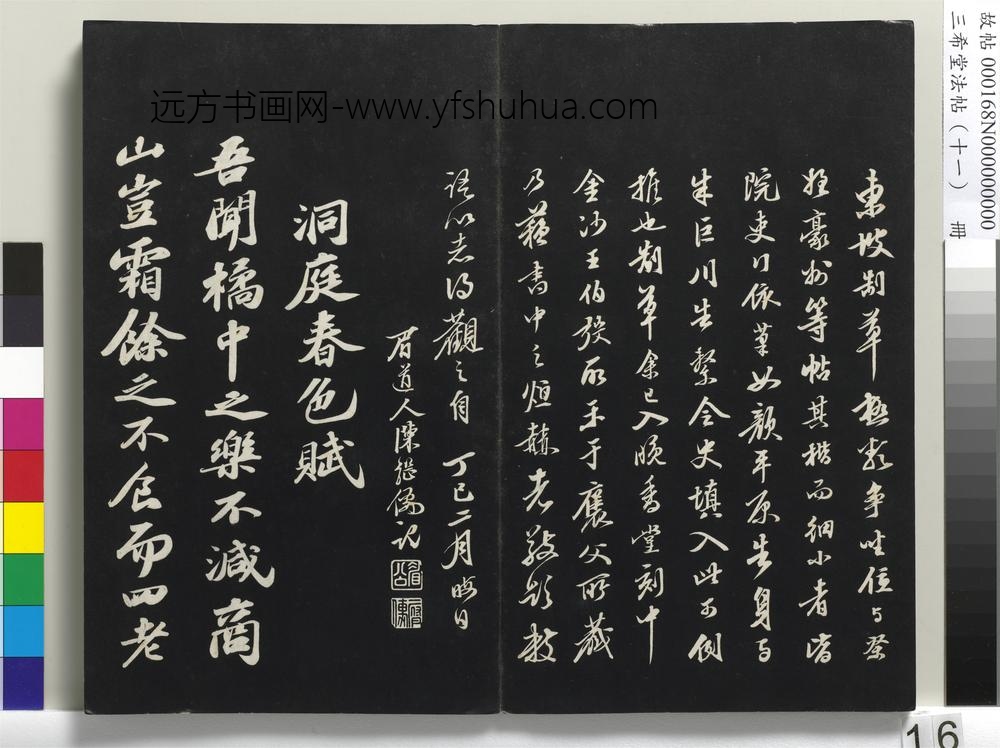 東坡制草極類爭坐位与祭
姪豪州等帖其楷而細小者皆
院吏依如顏平原告身与
朱巨川告繫令史填入此可例
推也制草余已入晚香堂刻中
金沙王伯發所于父所藏
乃蘓書中之烜赫者敬題数
語以志得觀之自 丁巳二月晦日
眉道人陳継儒記
眉公
洞庭春色賦
吾聞橘中之樂不減商
山豈霜餘之不食而四老
远方书画网-www.yfshuhua.com
故帖 000168N000000000
三希堂法帖（十一） 冊
16